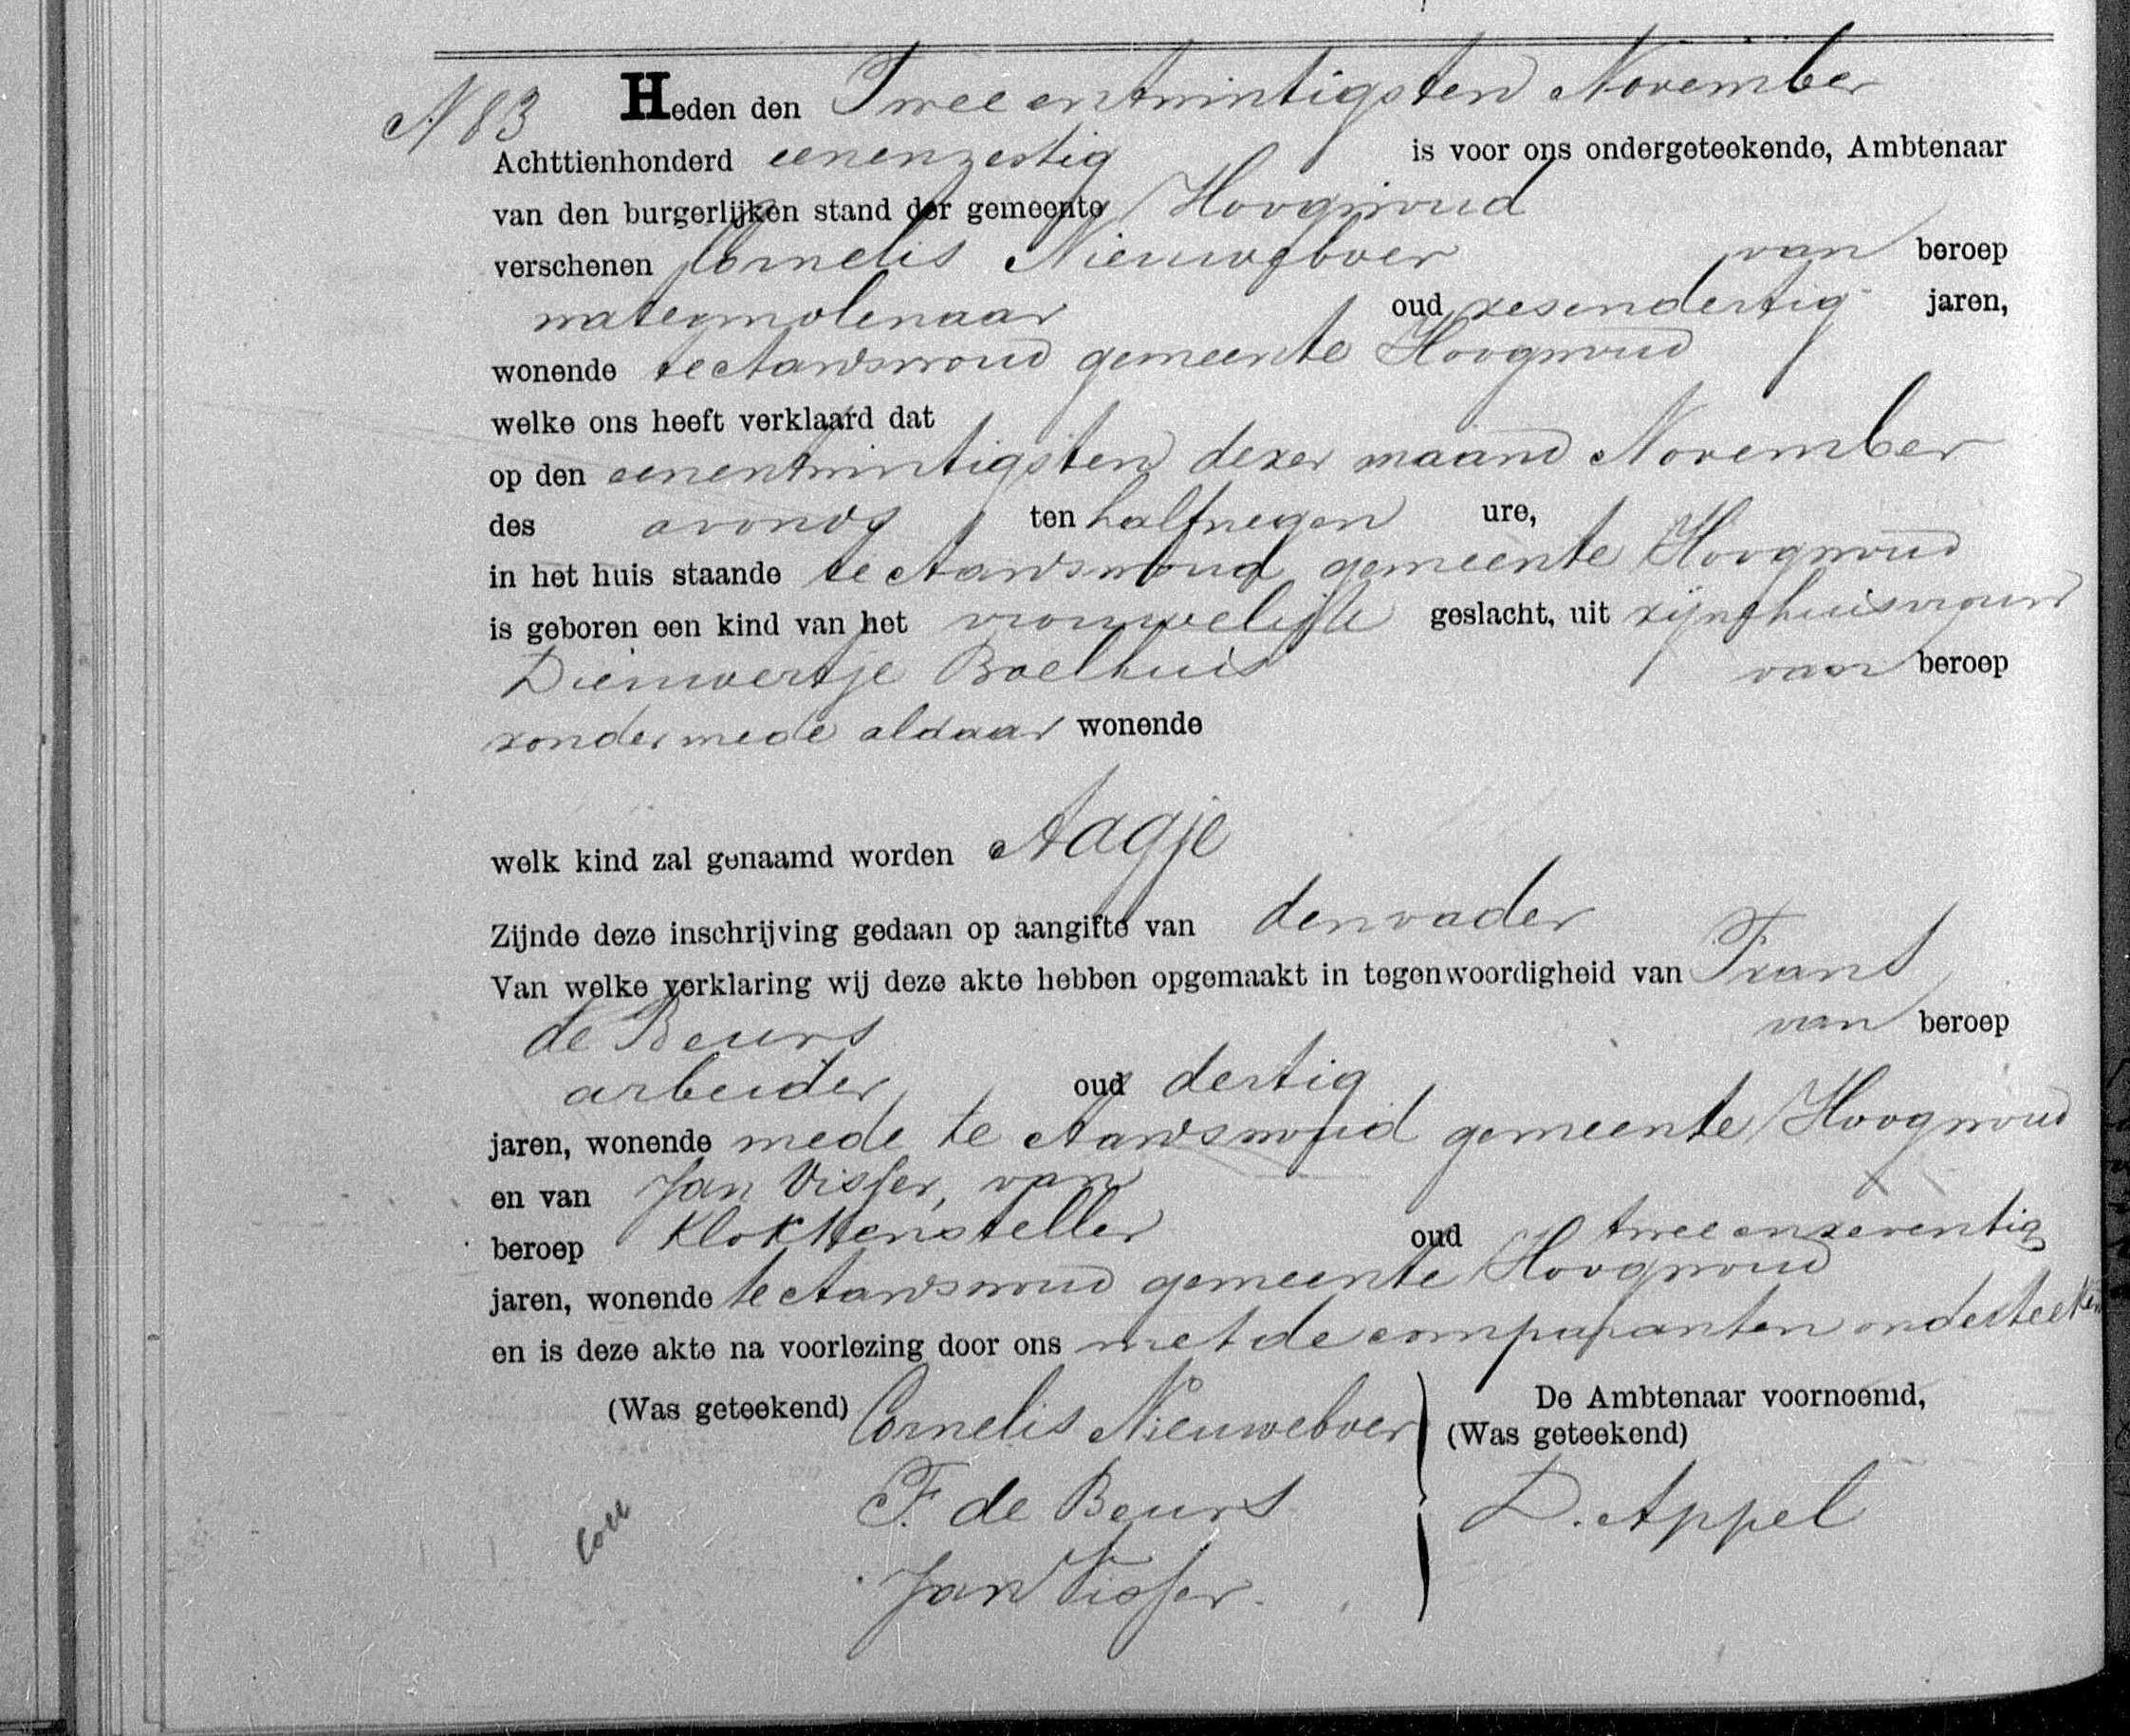 N 83 Heden den Twee entwintigsten November
Achttienhonderd eenenzestig is voor ons ondergeteekende, Ambtenaar
van den burgerlijken stand der gemeente Hoogwoud
verschenen Cornelis Nieuweboer van beroep
watermolenaar oud zesendertig jaren,
wonende te Aartswoud gemeente Hoogwoud
welke ons heeft verklaard dat
op den eenentwintigsten dezer maand November
des avonds ten half negen ure,
in het huis staande te Aartswoud gemeente Hoogwoud
is geboren een kind van het vrouwelijk geslacht, uit zijne huisvrouw
Dieuwertje Boelhuis van beroep
zonder mede aldaar wonende
welk kind zal genaamd worden Aagje
Zijnde deze inschrijving gedaan op aangifte van den vader
Van welke verklaring wij deze akte hebben opgemaakt in tegenwoordigheid van Frans
de Beurs van beroep
arbeider oud dertig
jaren, wonende mede te Aartswoud gemeente Hoogwoud
en van Jan Visser, van
beroep Klokkensteller oud twee enzeventig
jaren, wonende te Aartswoud gemeente Hoogwoud
en is deze akte na voorlezing door ons met de comparanten onderteekend
(Was geteekend) Cornelis Nieuweboer De Ambtenaar voornoemd,
(Was geteekend)
F. de Beurs D. Appel
Jan Visser.
Coll